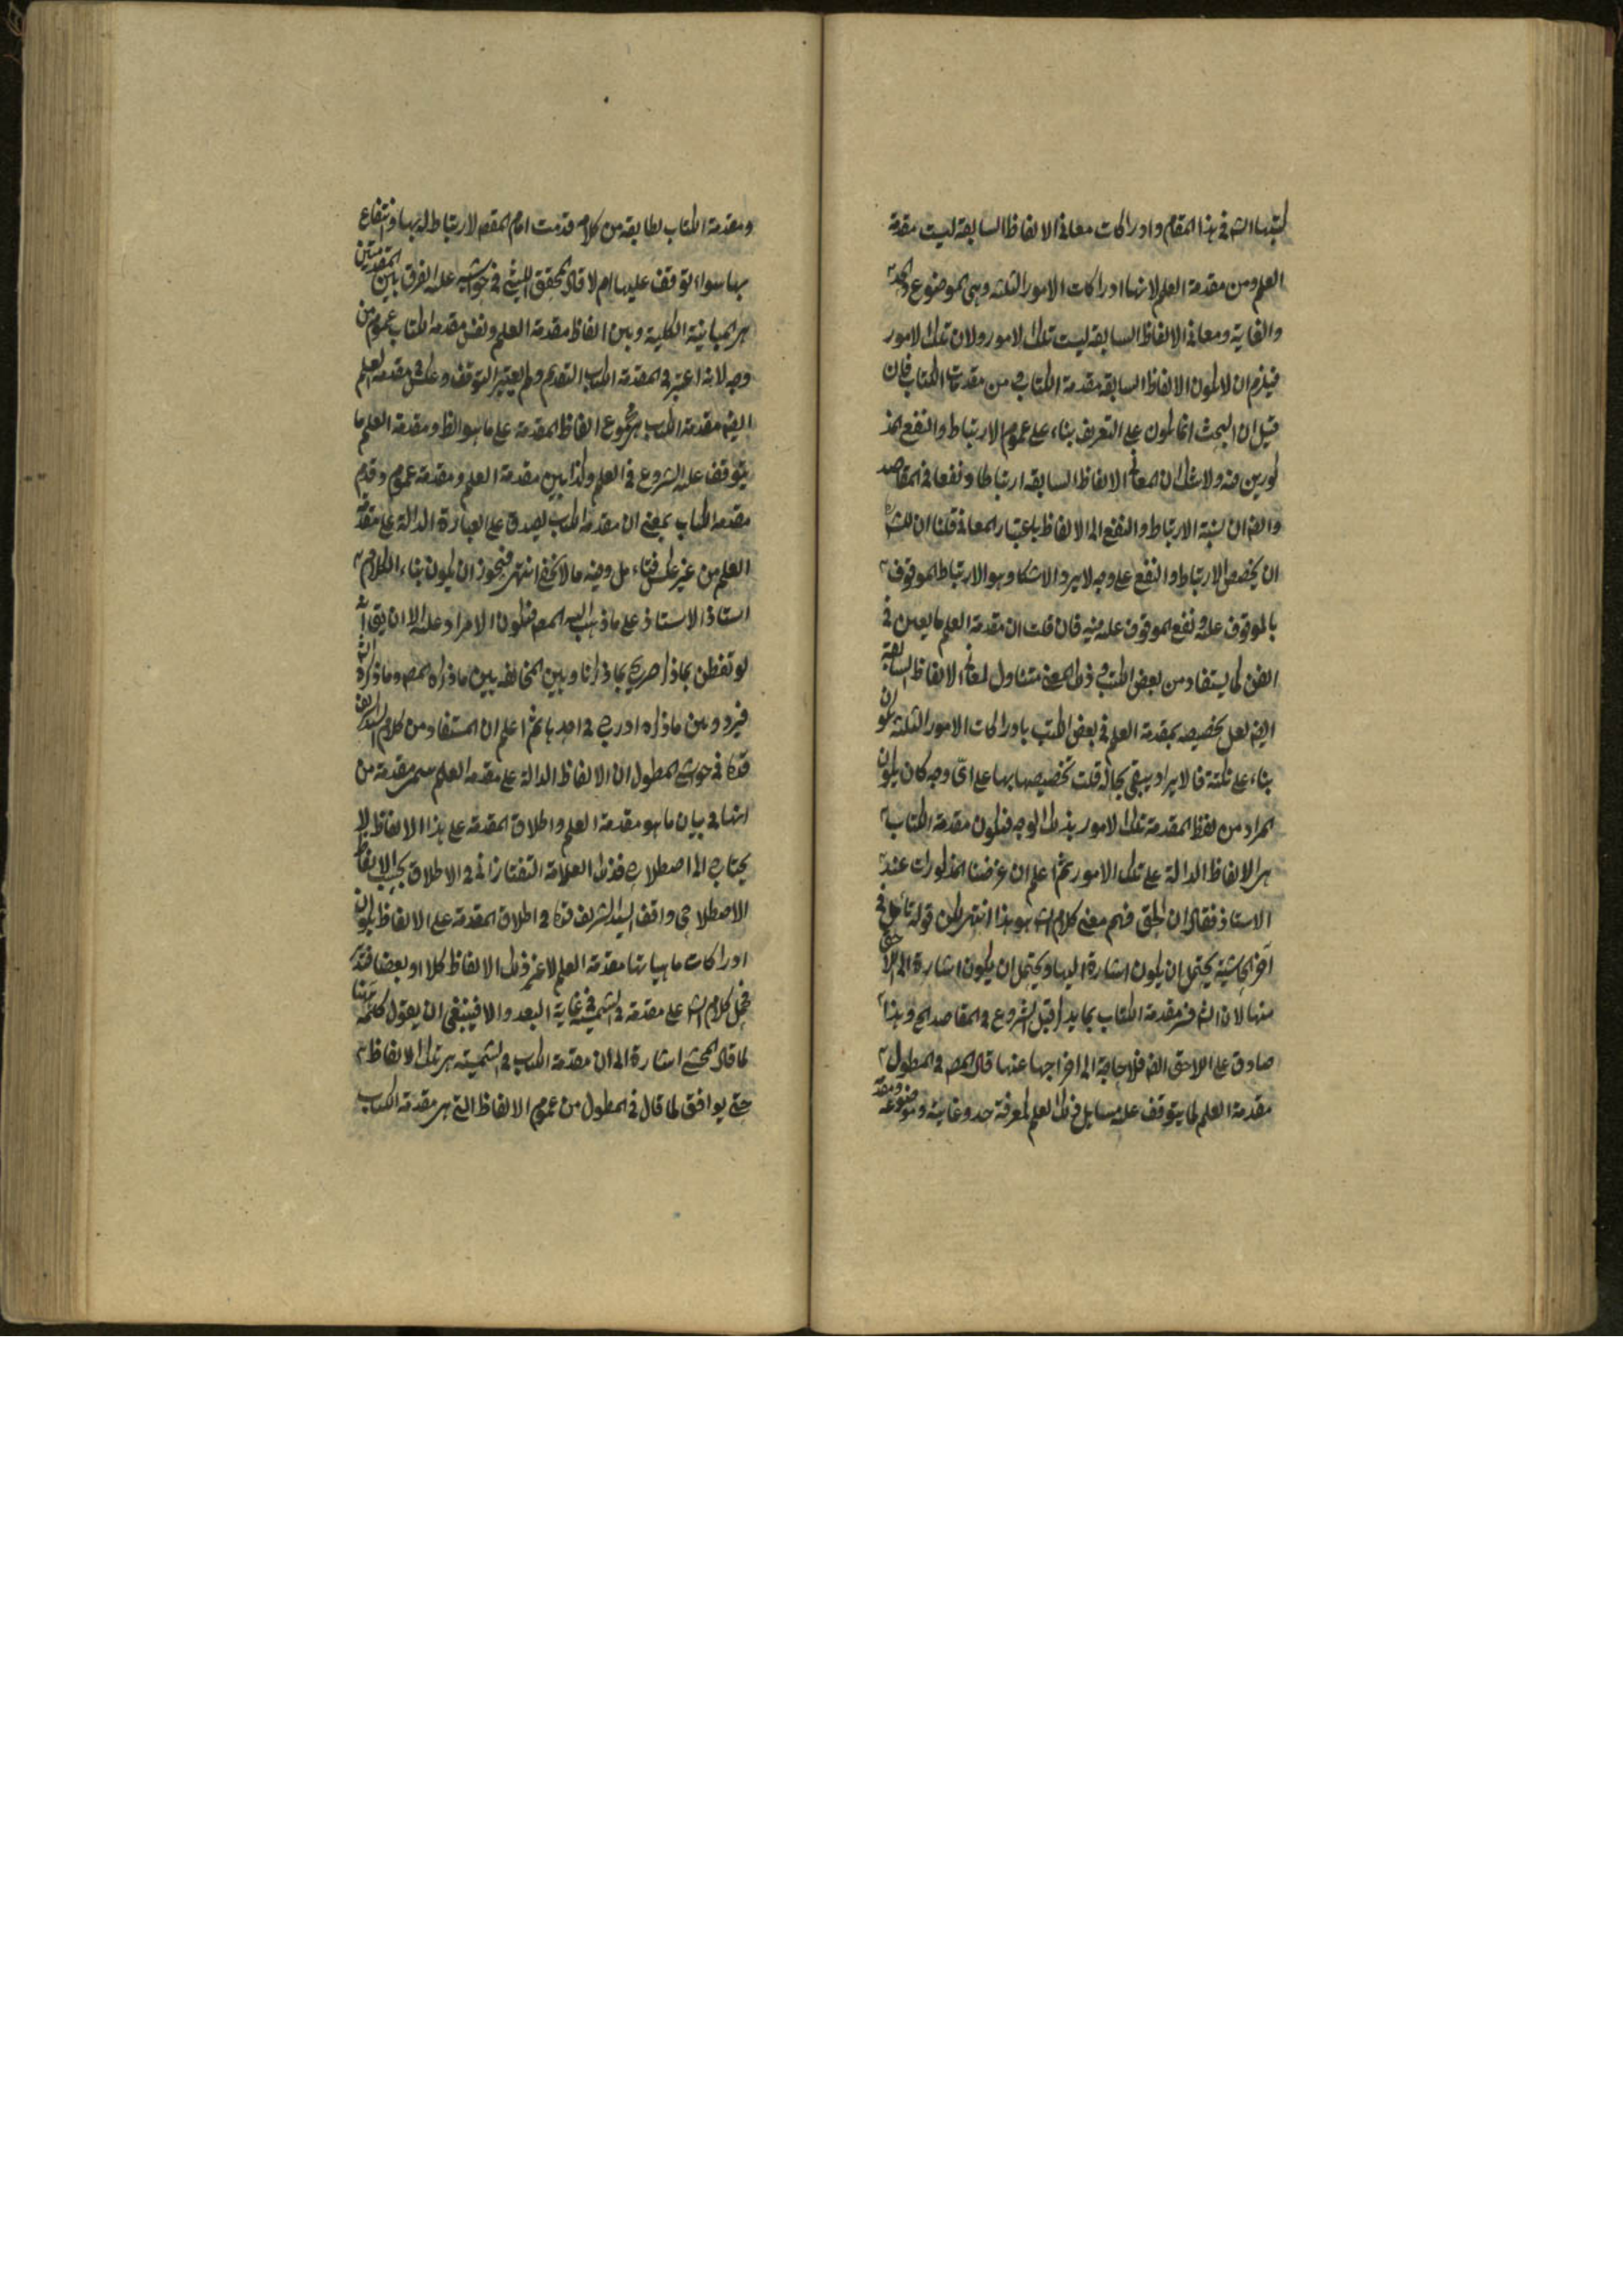 كتبها الشه في هذا المقام وادراكات معاني الالفاظ السابقة ليست مقدمة
العلم ومن مقدمة العلم لانها ادراكات الامور الثلثه وهي الموضوع والحد
والغاية ومعاني الالفاظ السابقه ليست تلك الامور ولان تلك الامور
فيلزم ان لا يكون الالفاظ السابقه مقدمة الكتاب ومن مقدمة الكتاب فان
قيل ان البحث انما يكون على التعريف بناء على عموم الارتباط والنفع المذ
كورين فيه ولا شك ان لمعاني الالفاظ السابقه ارتباطا ونفعا في المقاصد
وايضا ان نسبة الارتباط والنفع الى الالفاظ باعتبار المعاني قلنا ان للشه
ان يخصص الارتباط والنفع على وجه لا يرد الاشكال وهو الارتباط الموقوف
بالموقوف عليه ونفع الموقوف عليه فيه فان قلت ان مقدمة العلم ما يعين في
الفن كما يستفاد من بعض الكتب وذلك المعنى متناول لمعاني الالفاظ السابقة
ايضه لعل تخصيصه بمقدمة العلم في بعض الكتب بادراكات الامور الثلثة يكون
بناء على نكتة فالايراد يبقى بحاله قلت تخصيصها بها على اي وجه كان يكون
المراد من لفظ المقدمة تلك الامور بذلك الوجه فيكون مقدمة الكتاب
هي الالفاظ الدالة على تلك الامور ثم اعلم ان عرضنا المذكورات عند
الاستاذ فقال ان الحق فهم معنى كلام الشه هو هذا انتهى لكن قوله تأمل في
آخر الحاشية يحتمل ان يكون اشارة اليها ويحتمل ان يكون اشارة الى اللاحق
منها لان الشه فسر مقدمة الكتاب بما يذكر قبل الشروع في المقاصد الخ وهذا
صادق على اللاحق ايضه فلا حاجة الى اخراجها عنها قال المصه في المطول
مقدمة العلم لما يتوقف عليه مسايل ذلك العلم كمعرفة حد وغاية وموضوعه ومقد
ومقدمة الكتاب لطايفه من كلام قدمت امام المقصه لارتباط له بها وانتفاع
بها سواء توقف عليها ام لا قال المحقق الليثي في حواشيه عليه الفرق بين المقدمتين
هي المباينة الكلية وبين الفاظ مقدمة العلم ونفس مقدمة الكتاب عموم من
وجه لانه اعتبر في المقدمة الكتاب التقديم ولم يعتبر التوقف وعكس في مقدمة العلم
ايضه مقدمة الكتاب هي مجموع الفاظ المقدمة على ما هو الظ ومقدمة العلم ما
يتوقف عليه الشروع في العلم وكذا بين مقدمة العلم ومقدمة عموم وقدم
مقدمة الكتاب بمعنى ان مقدمة الكتاب يصدق على العبارة الدالة على مقدمة
العلم من غير عكس فتامل وفيه ما لا يخفى انتهى فيجوز ان يكون بناء الكلام
استاذ الاستاذ على ما ذهب اليه المصه فيكون الامراد عليه الا ان يق انه
لو تفطن بما ذكر صريح بما ذكرنا وبين المخالفه بين ما ذكره المصه وما ذكره الشه
فيرد وبين ما ذكره ادرج في احدها ثم اعلم ان المستفاد من كلام السيد الشريف
قدكا في حواشي المطول ان الالفاظ الدالة على مقدمة العلم سمى مقدمة من
انها في بيان ما هو مقدمة العلم واطلاق المقدمة على هذا الالفاظ لا
يحتاج الى اصطلاح فذلك العلامة التفتازاني في الاطلاق بحسب الالفاظ
الاصطلاحي واقف السيد الشريف قدكا في اطلاق المقدمة على الالفاظ يكون
ادراكات ماهياتها مقدمة العلم لا عن ذلك الالفاظ كلا او بعضا فتد
فحمل كلام الشه على مقدمة في الشمسية في غاية البعد والا فينبغي ان يقول كلمة هنا
لما قال المحشى اشارة الى ان مقدمة الكتاب في الشمسية هي تلك الالفاظ
حتى يوافق لما قال في المطول من عموم الالفاظ التي هي مقدمة الكتاب